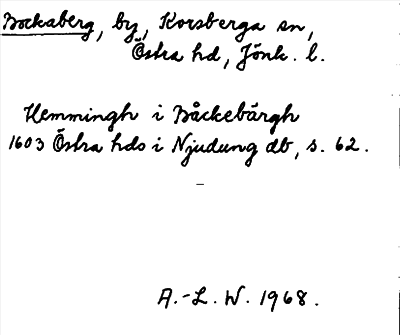 Bockaberg, by, Korsberga sn,
Östra hd, Jönk. l.
Hemmingh i Båckebärgh
1603 Östra hds i Njudung db, s. 62.
A.-L. W. 1968.